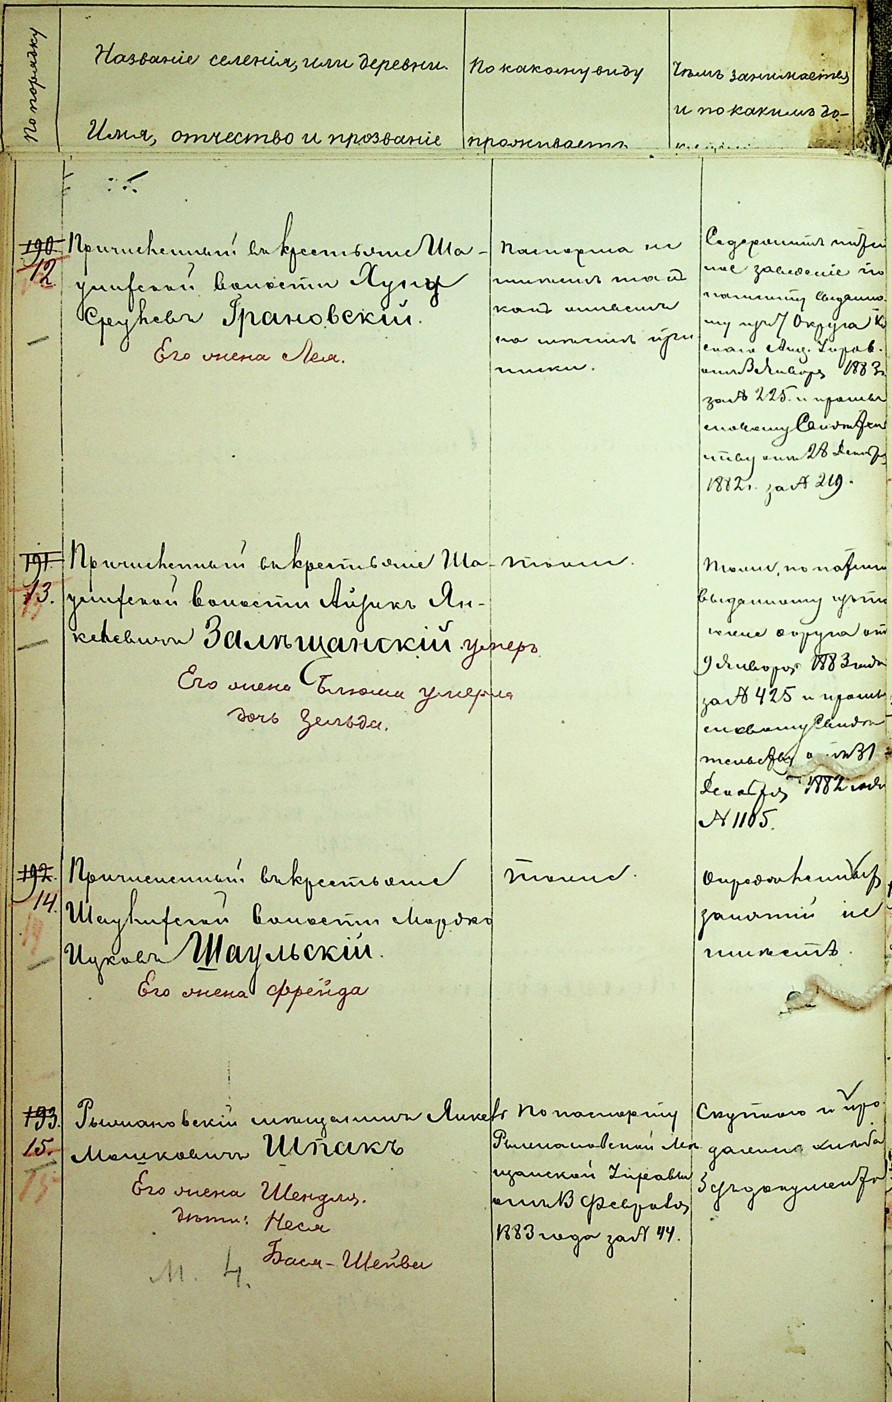 По порядку
Названіе селенія, или деревни.
Имя, отчество и прозваніе
По какому виду
проживаетъ
Чѣмъ занимается
и по какимъ до-
190
12
Причисленный въ крестьяне Ша-
уліевской волости
Грановскій.
Его жена Лея.
Паспорта не
имѣетъ такъ
какъ
по
Содержитъ
ное заведеніе по
патенту выданно-
му изъ 7 Округа
отъ Января 1883
за № 225. и промы
словому
отъ 28 Декабр
1882 г. за № 219.
191.
13.
Причисленный въ крестьяне Ша-
волости Айзикъ Ян-
келевичъ Залѣщанскій умеръ
Его жена Блюма умерла
дочь Зельда.
тоже.
Тоже, по патенту
выданному
округа отъ
9 Января 1883 года
за № 425 и промы
словому Свидѣ
тельству 31
Декабря 1882 года
№ 1105.
192.
14.
14
Причисленный въ крестьяне
волости Мордко
Ицковъ Шаульскій.
Его жена Фрейда
тоже.
Опредѣленныхъ
занятій не
имѣетъ.
193.
15.
15
Рышкановскій мѣщанинъ Янкель
Мошковичъ Шпакъ
Его жена Шендля.
дѣти: Неся
Бася-Шейва
М. 4.
По паспорту
Рышкановской Мѣ
щанской Управы
отъ Февраля
1883 года за № 44.
Скупкою и про
дажею хлѣба